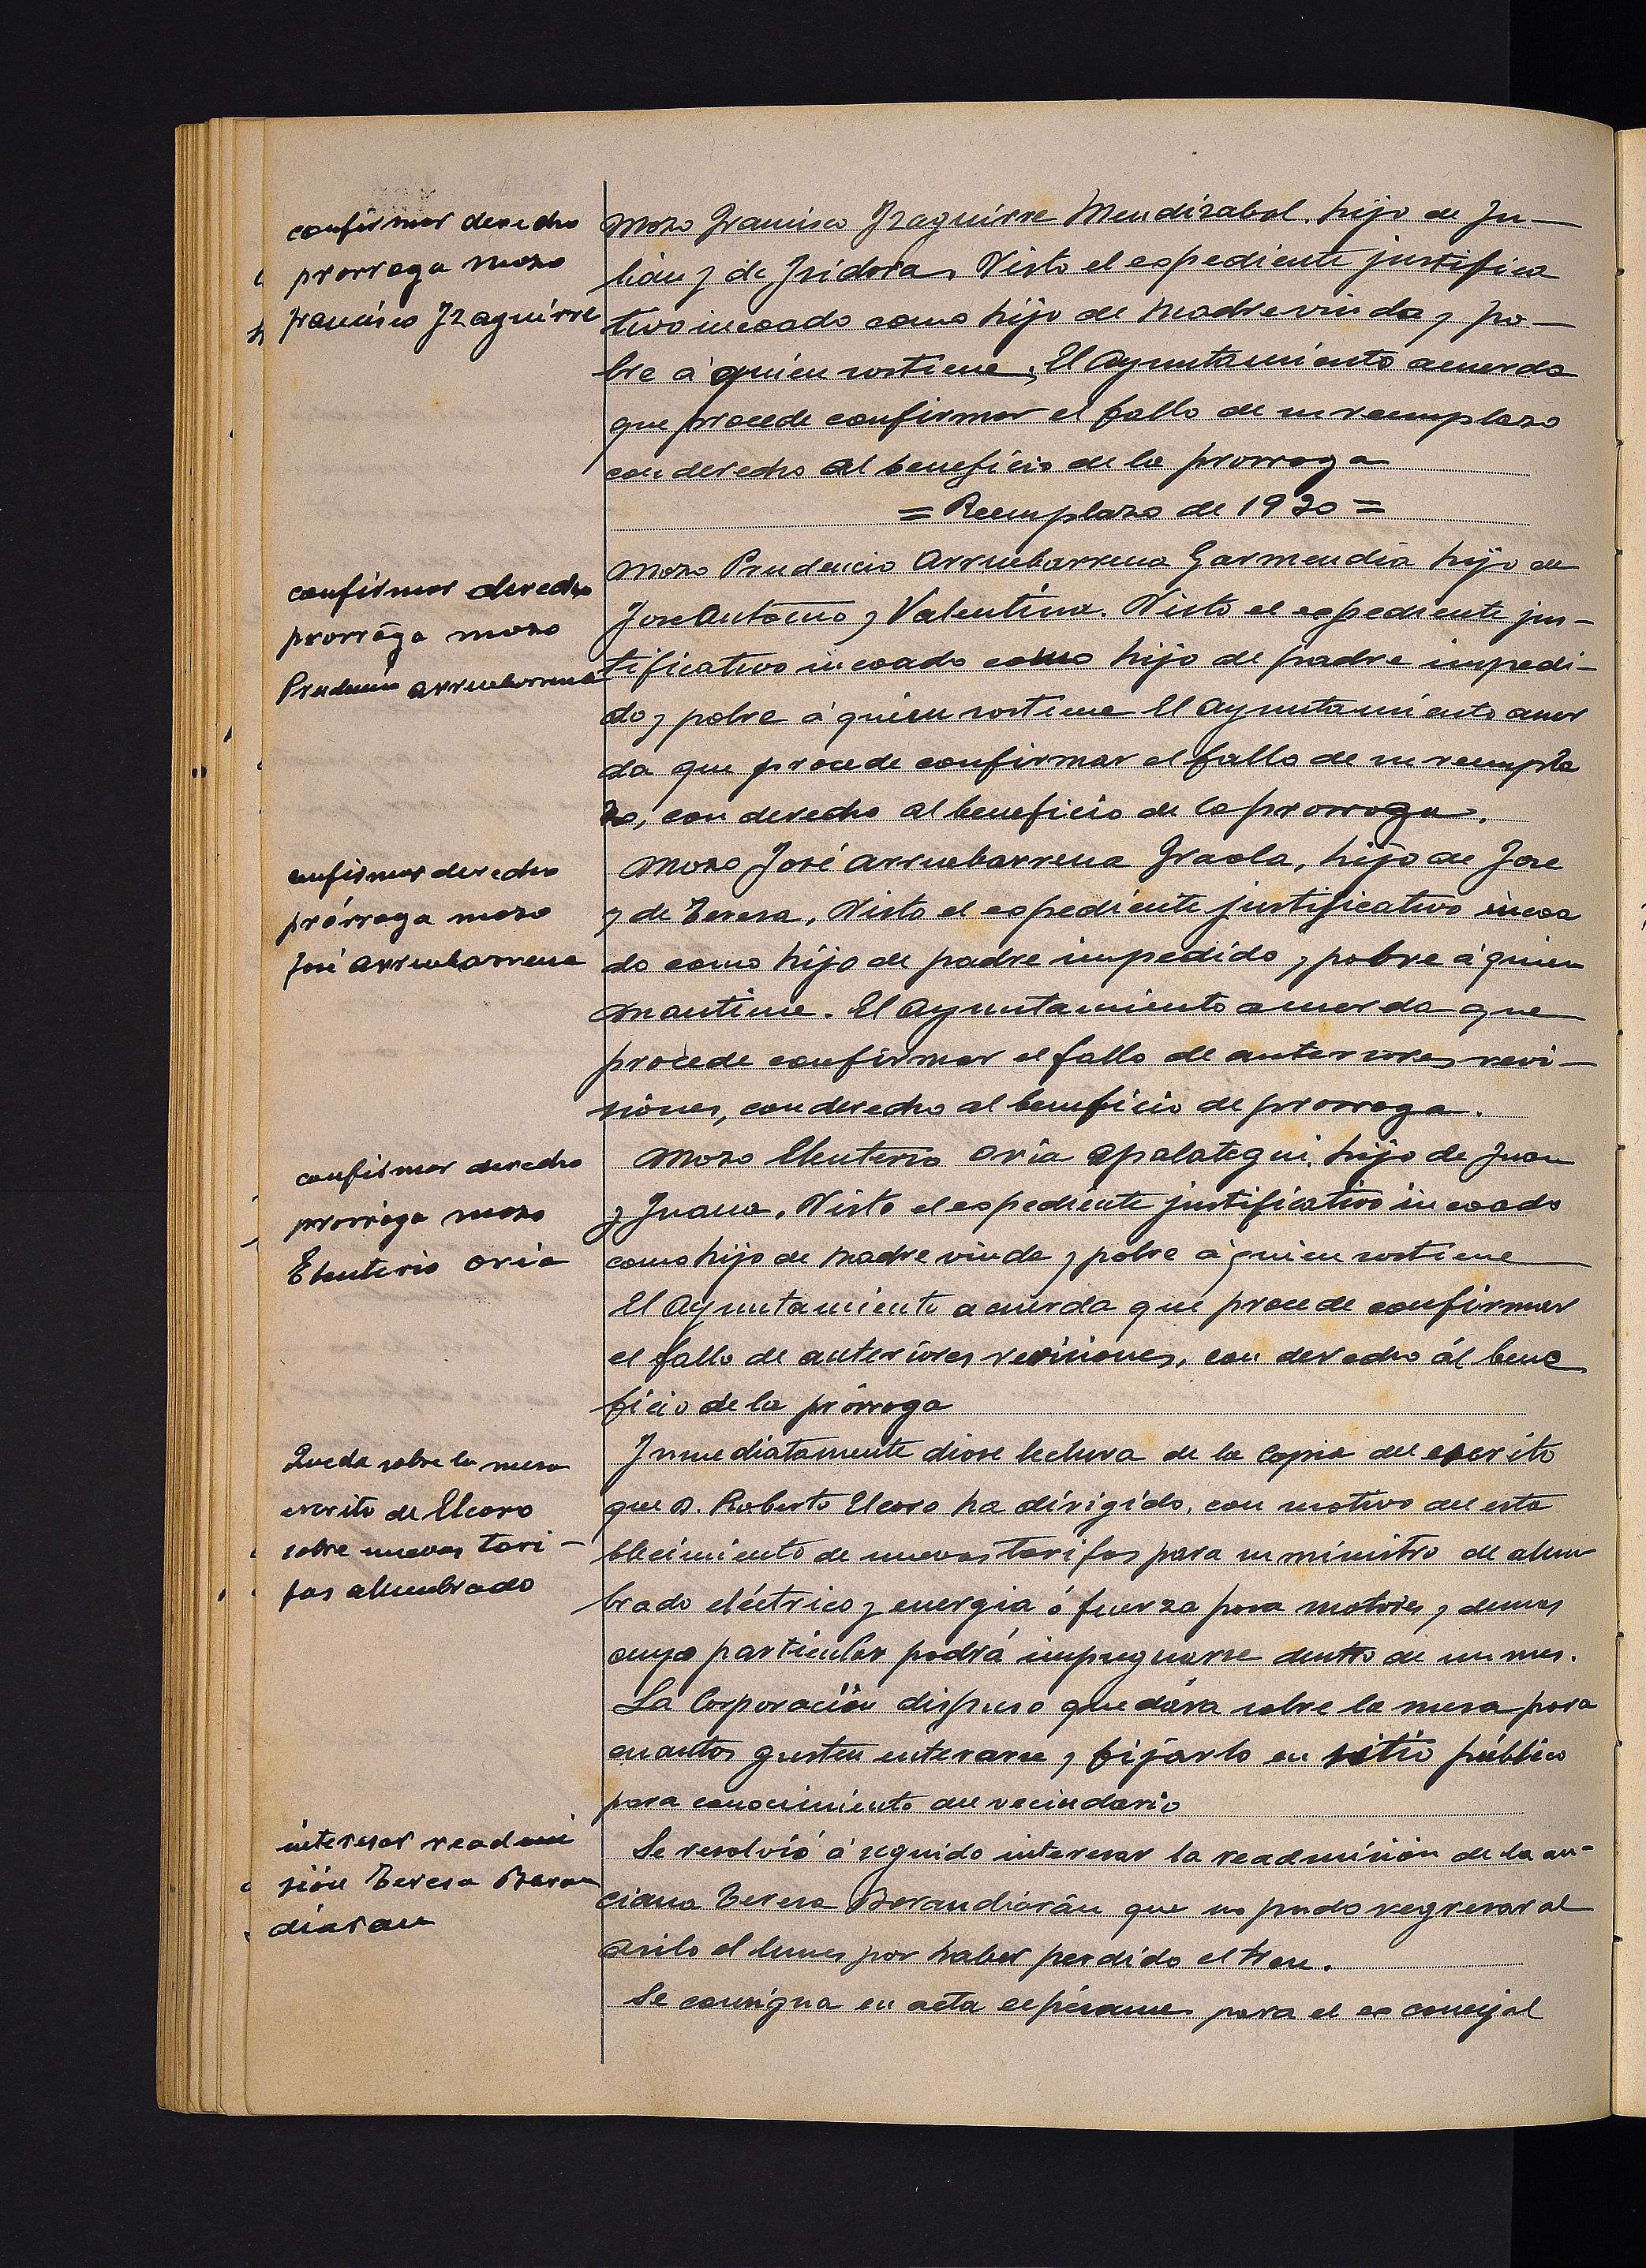 confirmar derecho
prorroga mozo
francisco Yzaguirre
Mozo Francisco Yzaguirre Mendizabal, hijo de Ju-
lián y de Isidora, Visto el expediente justifica
tivo incoado como hijo de Madre viuda y po-
bre á quien sostiene, El Ayuntamiento acuerda
que procede confirmar el fallo de su reemplazo
con derecho al beneficio de la prorroga
= Reemplazo de 1920 =
confirmar derecho
prorróga mozo
Prudencio Arruebarrena
Mozo Prudencio Arruebarrena Garmendia hijo de
Jose Antonio y Valentina. Visto el expediente jus-
tificativo incoado como hijo de padre impedi-
do y pobre á quien sostiene El Ayuntamiento acuer
da que procede confirmar el fallo de su reempla
zo, con derecho al beneficio de la prorroga.
confirmar derecho
prórroga mozo
José Arruebarrena
Mozo José Arruebarrena Graola, hijo de Jose
y de Teresa, Visto el expediente justificativo incoa
do como hijo de padre impedido y pobre á quien
mantiene. El Ayuntamiento acuerda que
procede confirmar el fallo de anteriores revi-
siones, con derecho al beneficio de prorroga.
confirmar derecho
prorróga mozo
Eleuterio Oria
Mozo Eleuterio Oria Apalategui, hijo de Juan
y Juana, Visto el expediente justificativo incoado
como hijo de Madre viuda y pobre á quien sostiene
El Ayuntamiento acuerda que procede confirmar
el fallo de anteriores revisiones, con derecho ál bene
ficio de la prórroga
Queda sobre la mesa
escrito de Elcoro
sobre nuevas tari-
fas alumbrado
Inmediatamente diose lectura de la Copia del escrito
que D. Roberto Elcoro ha dirigido, con motivo del esta
blecimiento de nuevas tarifas para suministro de alum
brado eléctrico y energia ó fuerza para motores y demas
cuyo particular podrá impugnarse dentro de un mes.
La Corporación dispuso quedára sobre la mesa para
cuantos gusten enterarse y fijarlo en sitio público
para conocimiento del vecindario
interesar readmi
sión Teresa Baran
diaran
Se resolvió á seguido interesar la readmisión de la an-
ciana Teresa Barandiarán que no pudo regresar al
asilo el lunes por haber perdido el tren.
Se consigna en acta el pésame para el ex concejal